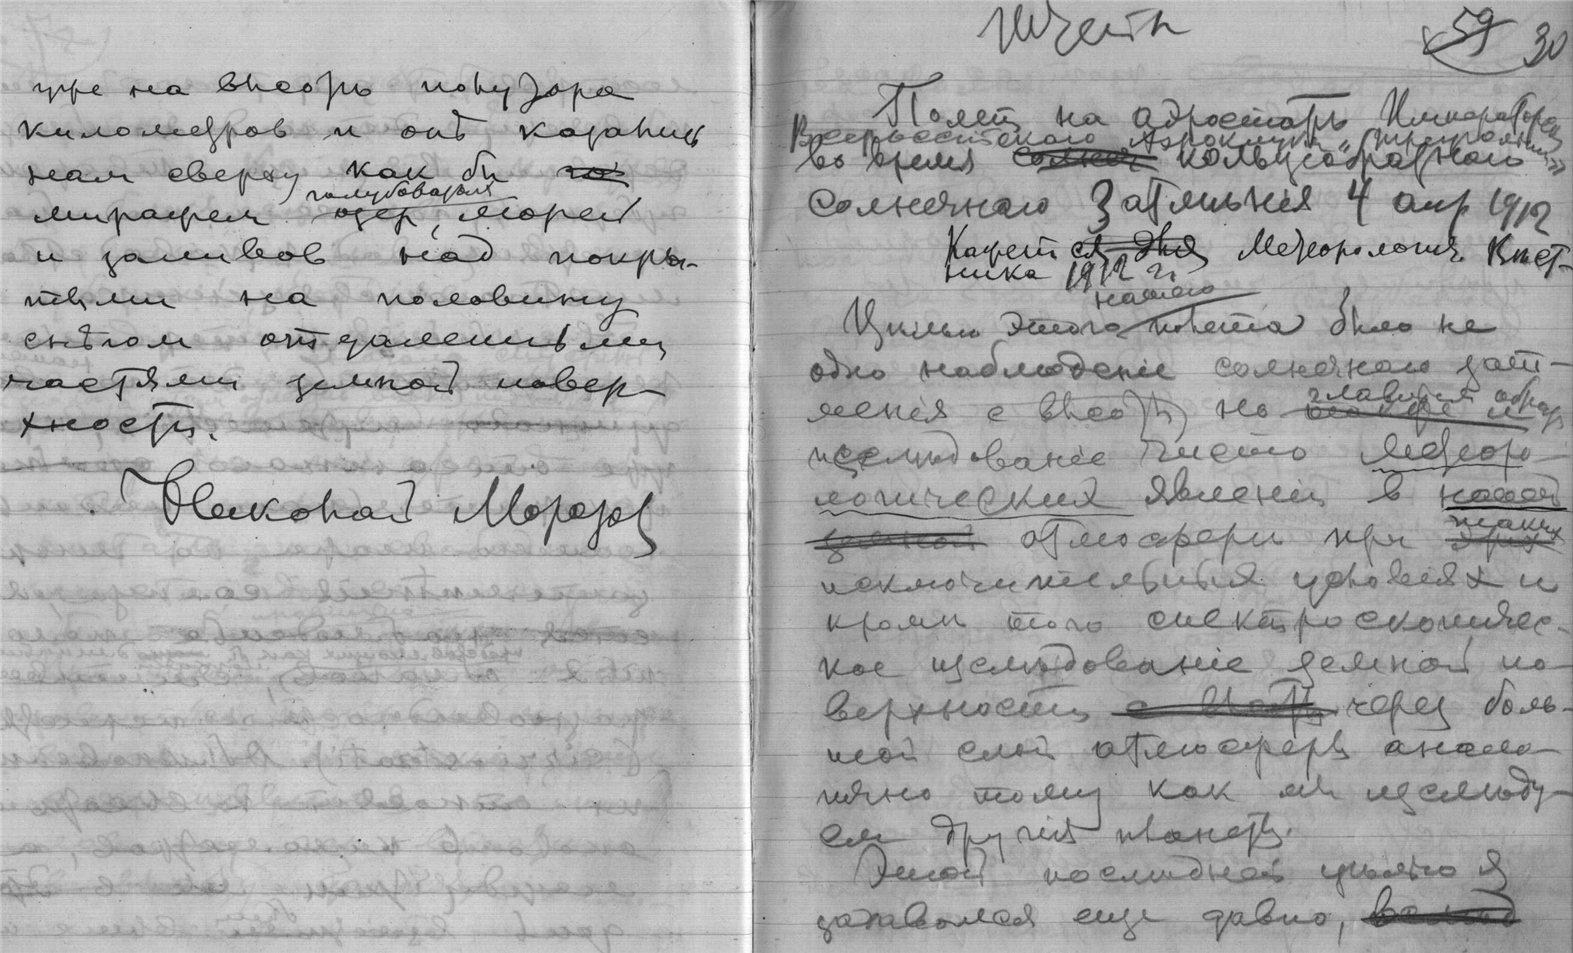 уже на высотѣ полутора
километров и онѣ казались
нам сверху как бы
голубоватых
миражем озер, морей
и заливов над покры-
тыми на половину
снѣгом отдаленными
частями земной повер-
хности.
Николай Морозов
59 30
Полет на аэростатѣ Императорск
Всероссійскаго Аэроклуба
во время солнеч кольцеобразнаго
солнечнаго Затмѣнія 4 апр 1912
Метеорологич. Вѣст-
ника 1912 г.
нашего
Цѣлью этого полета было не
одно наблюденіе солнечнаго зат-
менія с высоты, но
главным образ
изслѣдованіе чисто метеоро-
логических явленій в нашей
земной атмосферы при
таких
этих
исключительных условіях и
кромѣ того спектроскопичес-
кое изслѣдованіе земной по-
верхности с высоты через боль-
шой слой атмосферы анало-
гично тому как мы изслѣду-
ем другія планеты.
Этой послѣдней цѣлью я
задавался еще давно,